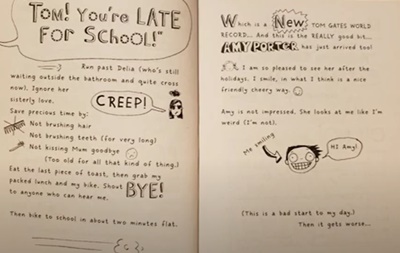 TOM! You're LATE
For SCHOOL!"
Run past Delia (who's still
waiting outside the bathroom and quite cross
now). Ignore her
sisterly love.
CREEP!
Save precious time by:
Not brushing hair
Not brushing teeth (for very long)
Not kissing Mum goodbye
(Too old for all that kind of thing.)
Eat the last piece of toast, then grab my
packed lunch and my bike. Shout BYE!
to anyone who can hear me.
Then bike to school in about two minutes flat.
Which is a New TOM GATES WORLD
RECORD... And this is the REALLY good bit...
AMY PORTER has just arrived too!
I am so pleased to see her after the
holidays. I smile, in what I think is a nice
friendly cheery way.
Amy is not impressed. She looks at me like I'm
weird (I'm not).
Me smiling
Hi Amy!
(This is a bad start to my day.)
Then it gets worse...